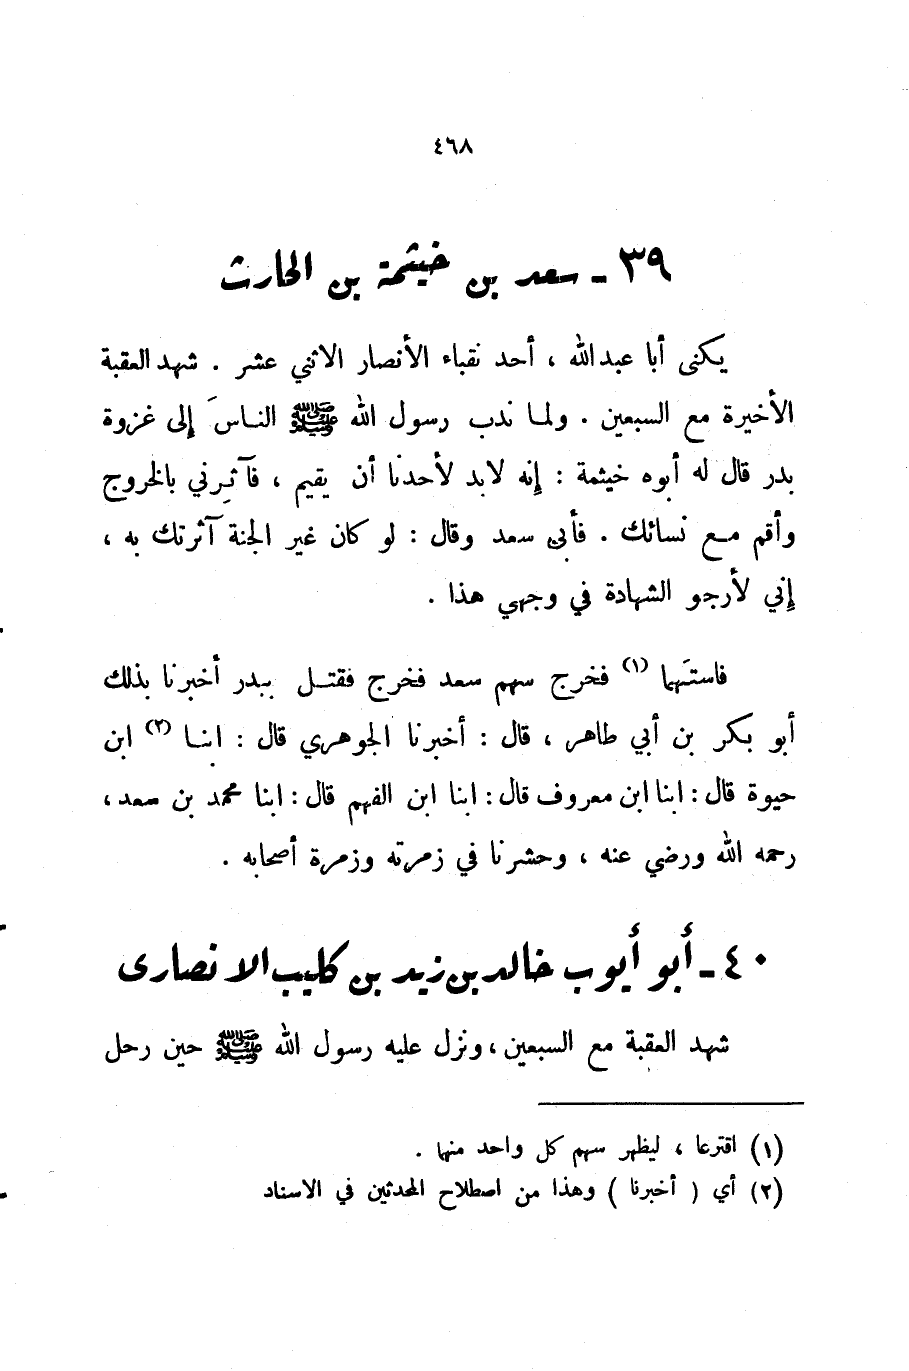 ٤٦٨
٣٩ ـ سعد بن خيثمة بن الحارث
يكنى أبا عبدالله ، أحد نقباء الأنصار الاثني عشر . شهد العقبة
الأخيرة مع السبعين . ولما ندب رسول الله ﷺ الناسَ إلى غزوة
بدر قال له أبوه خيثمة : إنه لابد لأحدنا أن يقيم ، فآثِرني بالخروج
وأقم مع نسائك . فأبى سعد وقال : لو كان غير الجنة آثرتك به ،
إني لأرجو الشهادة في وجهي هذا .
فاستَهما (١) فخرج سهم سعد فخرج فقتل ببدر أخبرنا بذلك
أبو بكر بن أبي طاهر ، قال : أخبرنا الجوهري قال : ابنا (٢) ابن
حيوة قال : ابنا ابن معروف قال : ابنا ابن الفهم قال : ابنا محمد بن سعد ،
رحمه الله ورضي عنه ، وحشرنا في زمرته وزمرة أصحابه .
٤٠ ـ أبو أيوب خالد بن زيد بن كليب الانصارى
شهد العقبة مع السبعين ، ونزل عليه رسول الله ﷺ حين رحل
(١) اقترعا ، ليظهر سهم كل واحد منهما .
(٢) أي ( أخبرنا ) وهذا من اصطلاح المحدثين في الاسناد